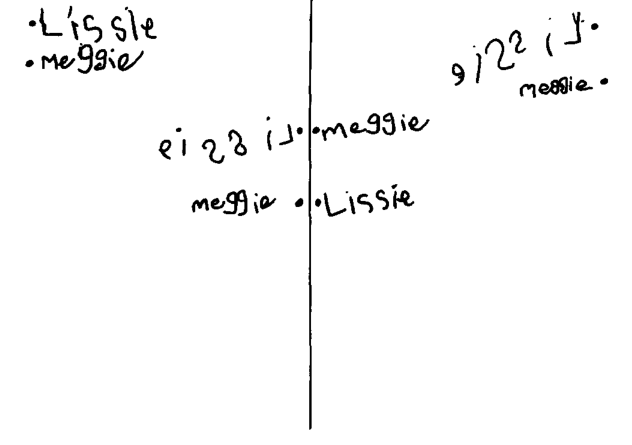 •Lissie
•meggie
eissiL•
meggie•
eissiL•
•meggie
meggie•
•Lissie